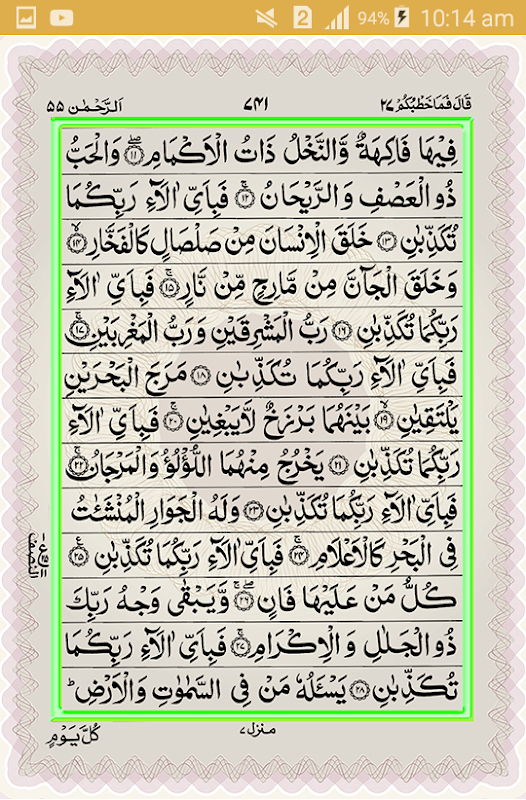 94% 10:14 am
اَلرَّحْمٰن ۵۵ ۷۴۱ قَالَ فَمَا خَطْبُكُمْ ۲۷
فِيْهَا فَاكِهَةٌ وَّالنَّخْلُ ذَاتُ الْاَكْمَامِ ۱۱ وَالْحَبُّ
ذُو الْعَصْفِ وَ الرَّيْحَانُ ۱۲ فَبِاَىِّ اٰلَآءِ رَبِّكُمَا
تُكَذِّبٰنِ ۱۳ خَلَقَ الْاِنْسَانَ مِنْ صَلْصَالٍ كَالْفَخَّارِ ۱۴
وَخَلَقَ الْجَآنَّ مِنْ مَّارِجٍ مِّنْ نَّارٍ ۱۵ فَبِاَىِّ اٰلَآءِ
رَبِّكُمَا تُكَذِّبٰنِ ۱۶ رَبُّ الْمَشْرِقَيْنِ وَ رَبُّ الْمَغْرِبَيْنِ ۱۷
فَبِاَىِّ اٰلَآءِ رَبِّكُمَا تُكَذِّبٰنِ ۱۸ مَرَجَ الْبَحْرَيْنِ
يَلْتَقِيٰنِ ۱۹ بَيْنَهُمَا بَرْزَخٌ لَّايَبْغِيٰنِ ۲۰ فَبِاَىِّ اٰلَآءِ
رَبِّكُمَا تُكَذِّبٰنِ ۲۱ يَخْرُجُ مِنْهُمَا اللُّؤْلُؤُ وَالْمَرْجَانُ ۲۲
فَبِاَىِّ اٰلَآءِ رَبِّكُمَا تُكَذِّبٰنِ ۲۳ وَلَهُ الْجَوَارِ الْمُنْشَئٰتُ
فِى الْبَحْرِ كَالْاَعْلَامِ ۲۴ فَبِاَىِّ اٰلَآءِ رَبِّكُمَا تُكَذِّبٰنِ ۲۵
كُلُّ مَنْ عَلَيْهَا فَانٍ ۲۶ وَّيَبْقٰى وَجْهُ رَبِّكَ
ذُو الْجَلٰلِ وَ الْاِكْرَامِ ۲۷ فَبِاَىِّ اٰلَآءِ رَبِّكُمَا
تُكَذِّبٰنِ ۲۸ يَسْئَلُهٗ مَنْ فِى السَّمٰوٰتِ وَالْاَرْضِ ؕ
النصف
منزل ۷
كُلَّ يَوْمٍ